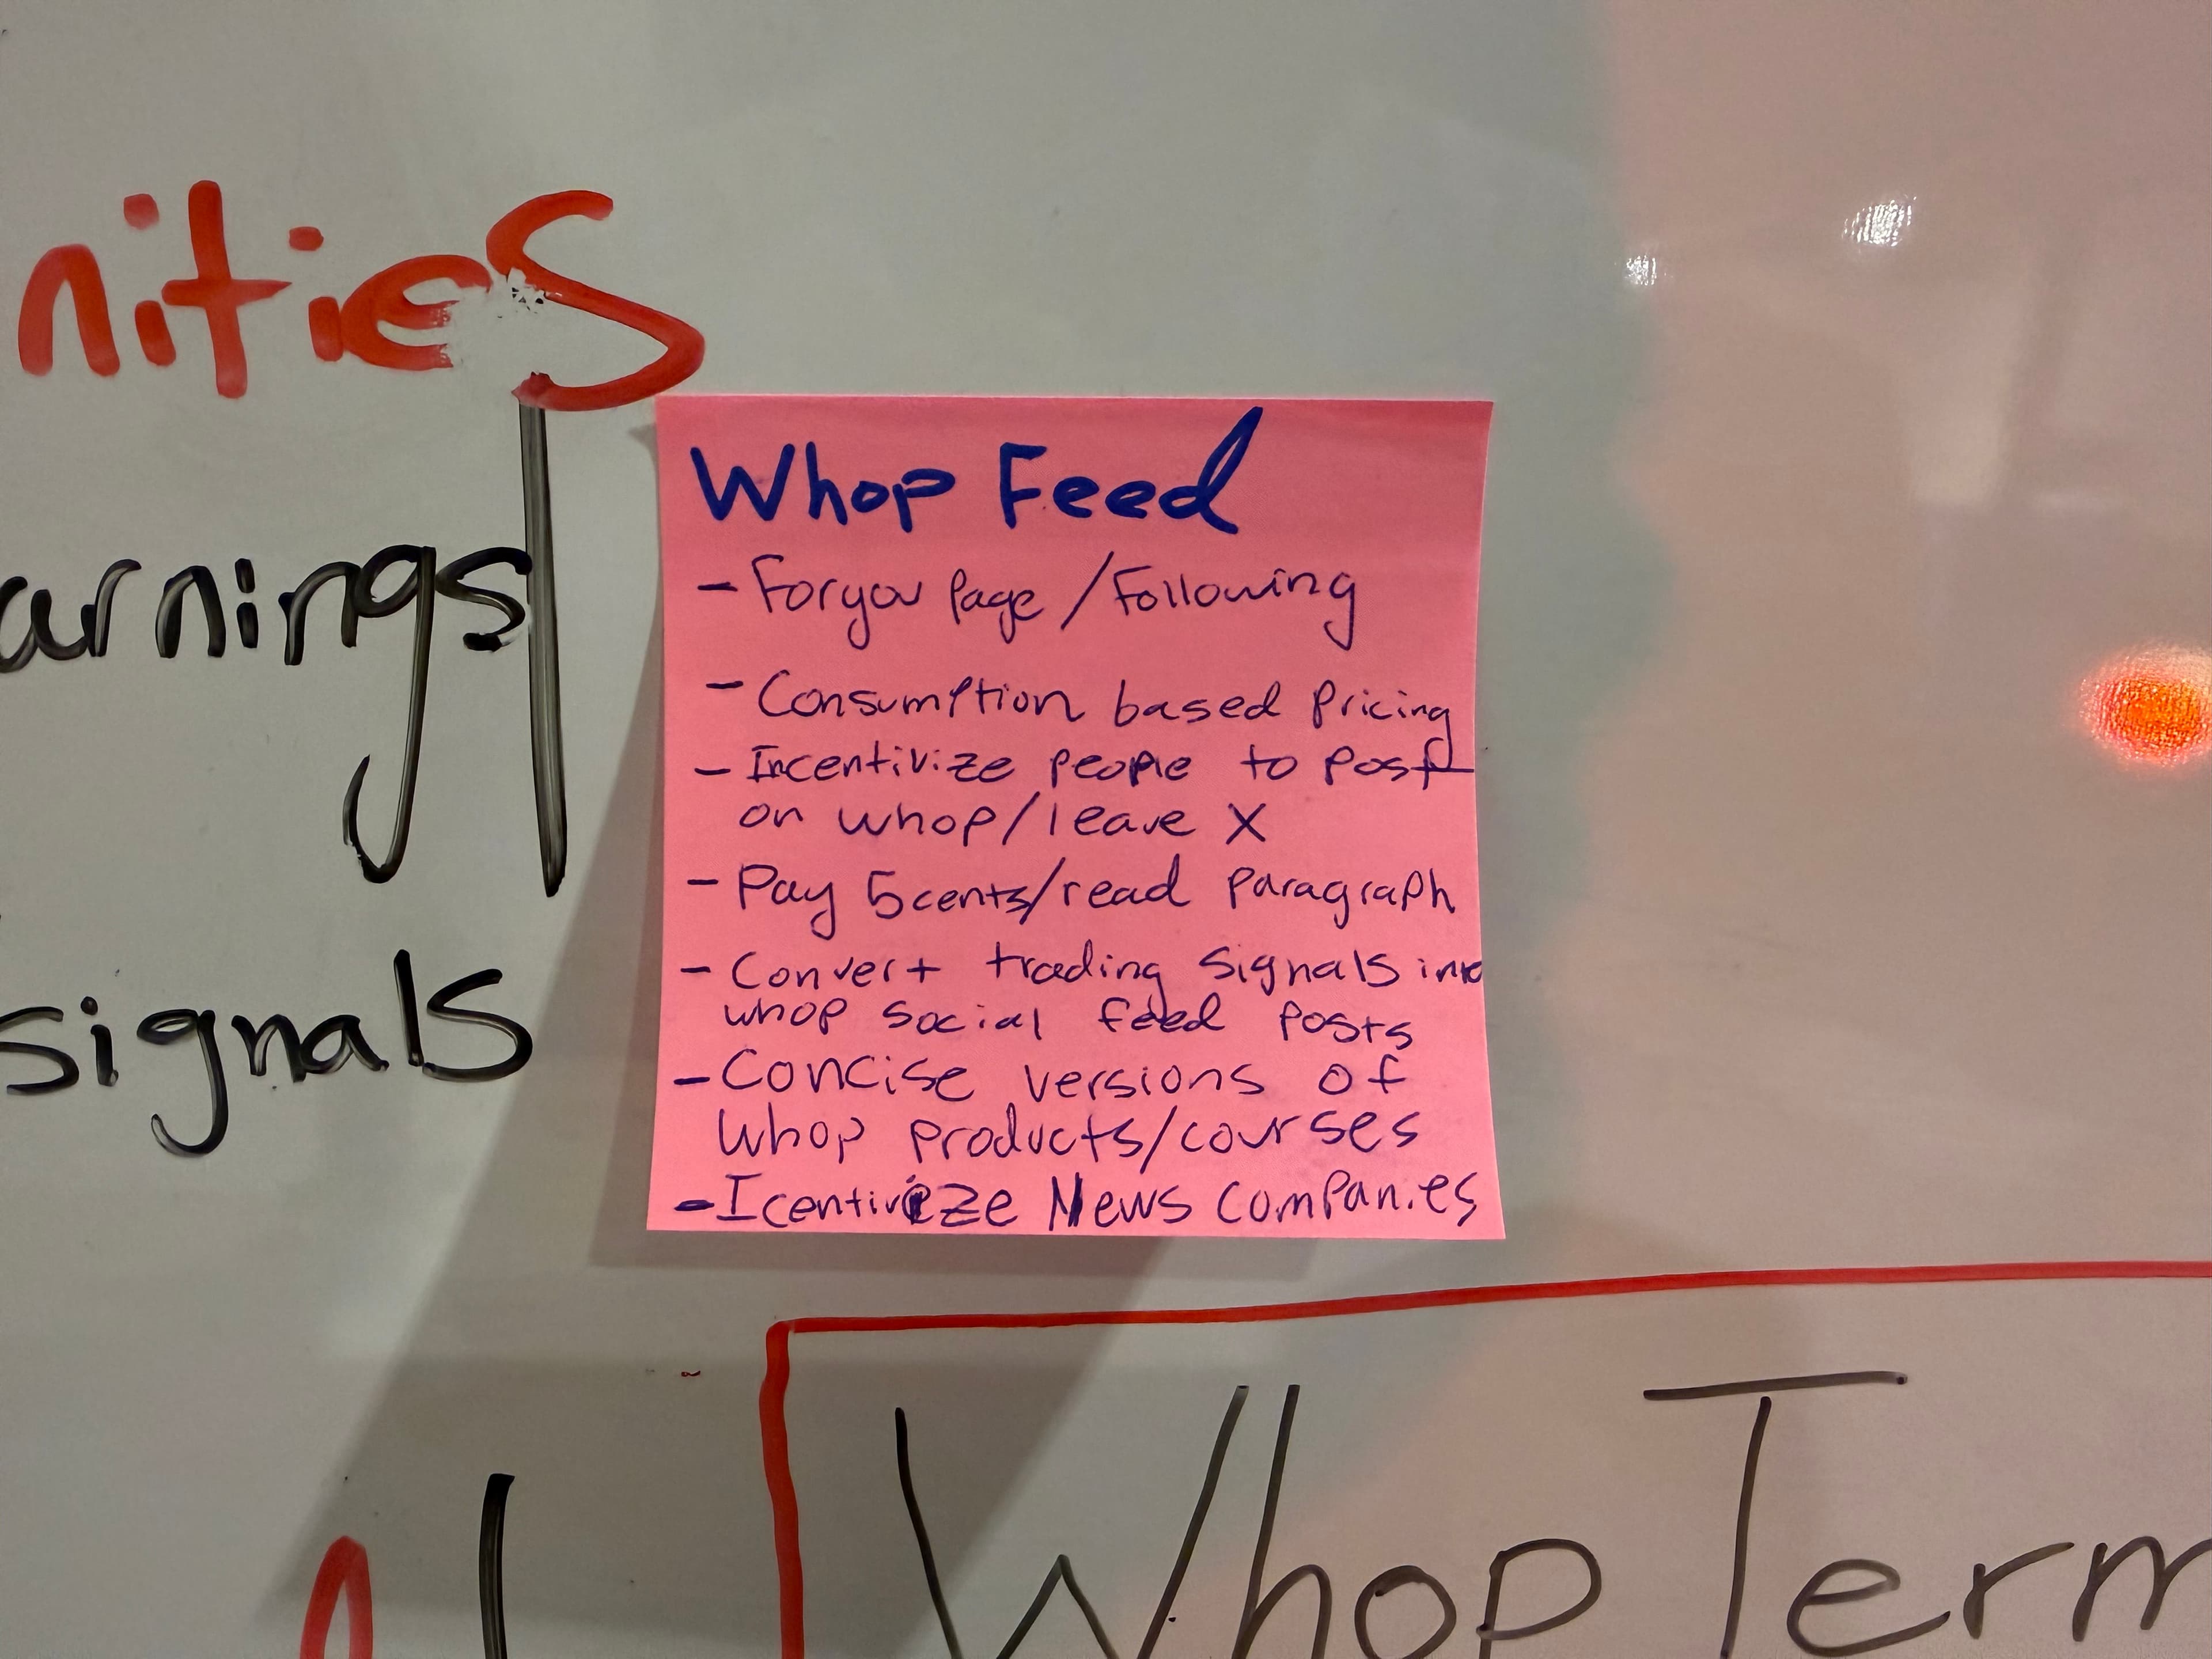 nities
arnings
signals
Whop Feed
- For you Page / Following
- Consumption based Pricing
- Incentivize people to Post
on whop/leave X
- Pay 5cents/read Paragraph
- Convert trading signals into
whop social feed posts
- Concise versions of
Whop products/courses
- Icentivize News Companies
Whop Term